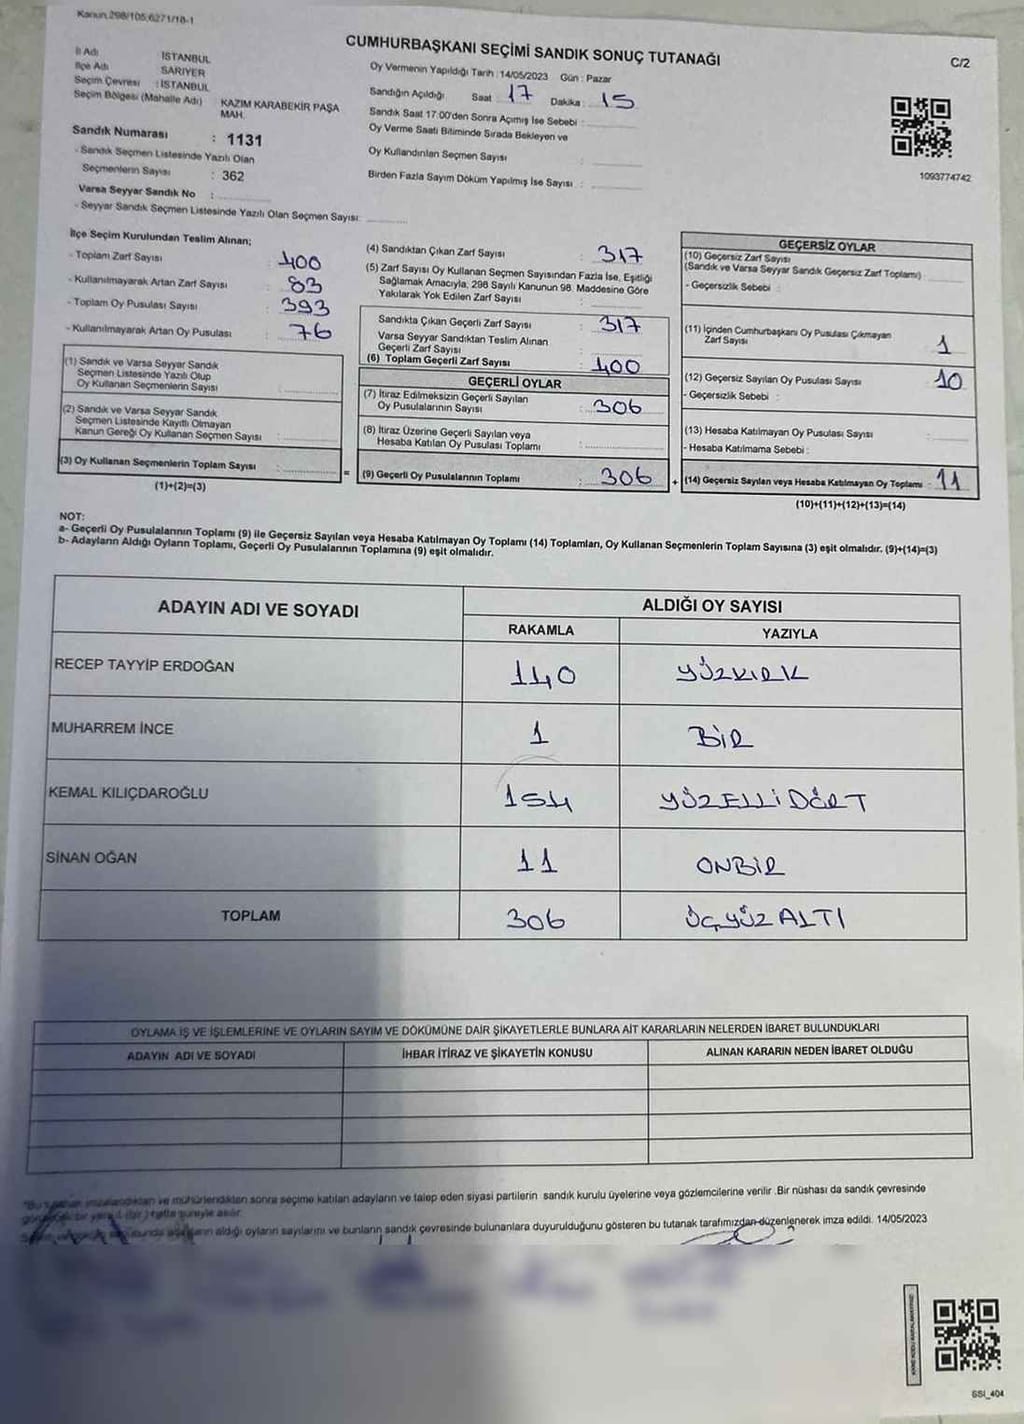 Kanun.298/105,6271/18-1
CUMHURBAŞKANI SEÇİMİ SANDIK SONUÇ TUTANAĞI
C/2
İl Adı : İSTANBUL
İlçe Adı : SARIYER
Seçim Çevresi : İSTANBUL
Seçim Bölgesi (Mahalle Adı) KAZIM KARABEKİR PAŞA MAH.
Sandık Numarası : 1131
- Sandık Seçmen Listesinde Yazılı Olan
Seçmenlerin Sayısı : 362
Varsa Seyyar Sandık No :
- Seyyar Sandık Seçmen Listesinde Yazılı Olan Seçmen Sayısı:
Oy Vermenin Yapıldığı Tarih : 14/05/2023 Gün : Pazar
Sandığın Açıldığı Saat 17 Dakika : 15
Sandık Saat 17:00'den Sonra Açımış İse Sebebi :
Oy Verme Saati Bitiminde Sırada Bekleyen ve
Oy Kullandırılan Seçmen Sayısı :
Birden Fazla Sayım Döküm Yapılmış İse Sayısı :
1093774742
İlçe Seçim Kurulundan Teslim Alınan;
- Toplam Zarf Sayısı : 400
- Kullanılmayarak Artan Zarf Sayısı : 83
- Toplam Oy Pusulası Sayısı : 393
- Kullanılmayarak Artan Oy Pusulası : 76
(1) Sandık ve Varsa Seyyar Sandık
Seçmen Listesinde Yazılı Olup
Oy Kullanan Seçmenlerin Sayısı :
(2) Sandık ve Varsa Seyyar Sandık
Seçmen Listesinde Kayıtlı Olmayan
Kanun Gereği Oy Kullanan Seçmen Sayısı :
(3) Oy Kullanan Seçmenlerin Toplam Sayısı :
(1)+(2)=(3)
(4) Sandıktan Çıkan Zarf Sayısı : 317
(5) Zarf Sayısı Oy Kullanan Seçmen Sayısından Fazla İse, Eşitliği
Sağlamak Amacıyla, 298 Sayılı Kanunun 98. Maddesine Göre
Yakılarak Yok Edilen Zarf Sayısı :
Sandıkta Çıkan Geçerli Zarf Sayısı : 317
Varsa Seyyar Sandıktan Teslim Alınan
Geçerli Zarf Sayısı :
(6) Toplam Geçerli Zarf Sayısı : 400
GEÇERLİ OYLAR
(7) İtiraz Edilmeksizin Geçerli Sayılan
Oy Pusulalarının Sayısı : 306
(8) İtiraz Üzerine Geçerli Sayılan veya
Hesaba Katılan Oy Pusulası Toplamı :
= (9) Geçerli Oy Pusulalarının Toplamı : 306
GEÇERSİZ OYLAR
(10) Geçersiz Zarf Sayısı
(Sandık ve Varsa Seyyar Sandık Geçersiz Zarf Toplamı) :
- Geçersizlik Sebebi :
(11) İçinden Cumhurbaşkanı Oy Pusulası Çıkmayan
Zarf Sayısı : 1
(12) Geçersiz Sayılan Oy Pusulası Sayısı : 10
- Geçersizlik Sebebi :
(13) Hesaba Katılmayan Oy Pusulası Sayısı :
- Hesaba Katılmama Sebebi :
+ (14) Geçersiz Sayılan veya Hesaba Katılmayan Oy Toplamı : 11
(10)+(11)+(12)+(13)=(14)
NOT:
a- Geçerli Oy Pusulalarının Toplamı (9) ile Geçersiz Sayılan veya Hesaba Katılmayan Oy Toplamı (14) Toplamları, Oy Kullanan Seçmenlerin Toplam Sayısına (3) eşit olmalıdır. (9)+(14)=(3)
b- Adayların Aldığı Oyların Toplamı, Geçerli Oy Pusulalarının Toplamına (9) eşit olmalıdır.
ADAYIN ADI VE SOYADI
ALDIĞI OY SAYISI
RAKAMLA YAZIYLA
RECEP TAYYİP ERDOĞAN 140 YÜZKIRK
MUHARREM İNCE 1 BİR
KEMAL KILIÇDAROĞLU 154 YÜZELLİDÖRT
SİNAN OĞAN 11 ONBİR
TOPLAM 306 ÜÇYÜZALTI
OYLAMA İŞ VE İŞLEMLERİNE VE OYLARIN SAYIM VE DÖKÜMÜNE DAİR ŞİKAYETLERLE BUNLARA AİT KARARLARIN NELERDEN İBARET BULUNDUKLARI
ADAYIN ADI VE SOYADI İHBAR İTİRAZ VE ŞİKAYETİN KONUSU ALINAN KARARIN NEDEN İBARET OLDUĞU
*Bu tutanak imzalandıktan ve mühürlendikten sonra seçime katılan adayların ve talep eden siyasi partilerin sandık kurulu üyelerine veya gözlemcilerine verilir .Bir nüshası da sandık çevresinde
bir yere (bir) hafta süreyle asılır.
aldığı oyların sayılarını ve bunların sandık çevresinde bulunanlara duyurulduğunu gösteren bu tutanak tarafımızdan düzenlenerek imza edildi. 14/05/2023
SSI_404